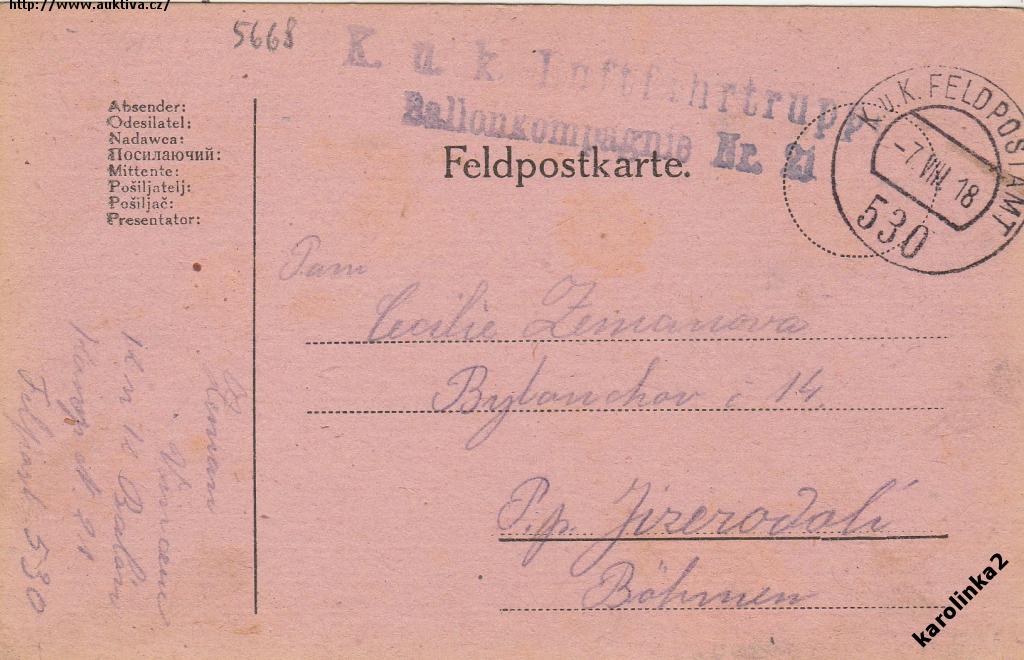 http://www.auktiva.cz/
5668
K. u. k. Luftfahrtrupp
Ballonkompagnie Nr. 21
K.u.K. FELDPOSTAMT
-7.VIII.18
530
Absender:
Odesilatel:
Nadawca:
Посилаючий:
Mittente:
Pošiljatelj:
Pošiljač:
Presentator:
Feldpostkarte.
Pani
Cecilie Zemanova
Bylanchov č 14
P.p. Jizerodolí
Böhmen
Zeman
Vincenc
K u K Balon
Komp N. 21
Felpost 530
karolinka2